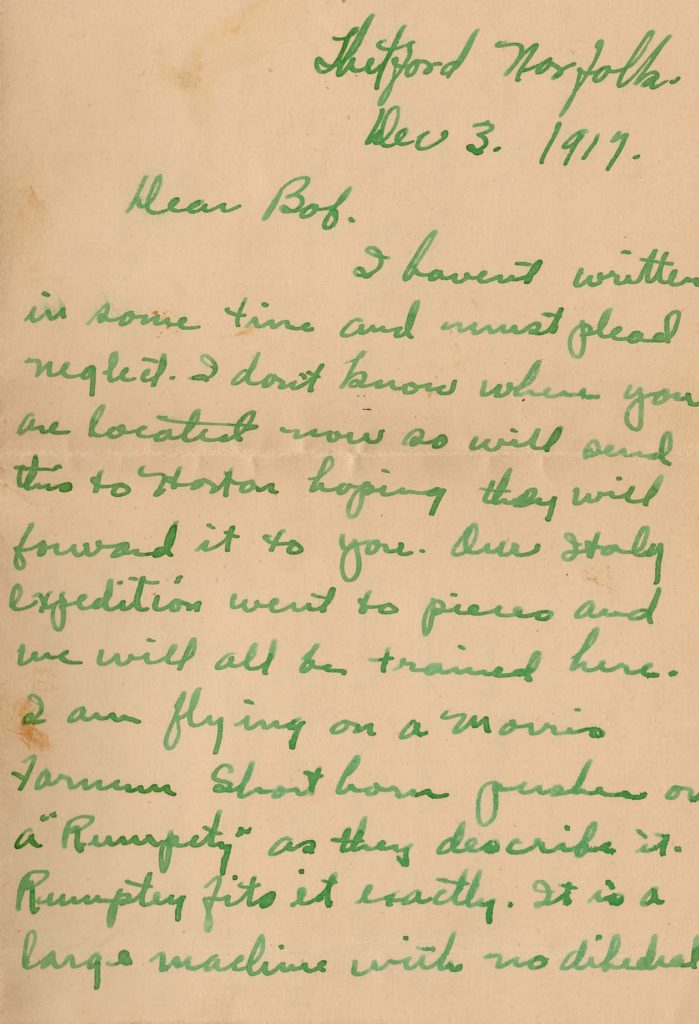 Thetford Norfolk.
Dec 3. 1917.
Dear Bob.
I havent written
in some time and must plead
neglect. I don't know where you
are located now so will send
this to  hoping they will
forward it to you. Our Italy
expedition went to pieces and
we will all be trained here.
I am flying on a Morris
Farnum Short horn pusher or
a "Rumpety" as they describe it.
Rumptey fits it exactly. It is a
large machine with no dihedral